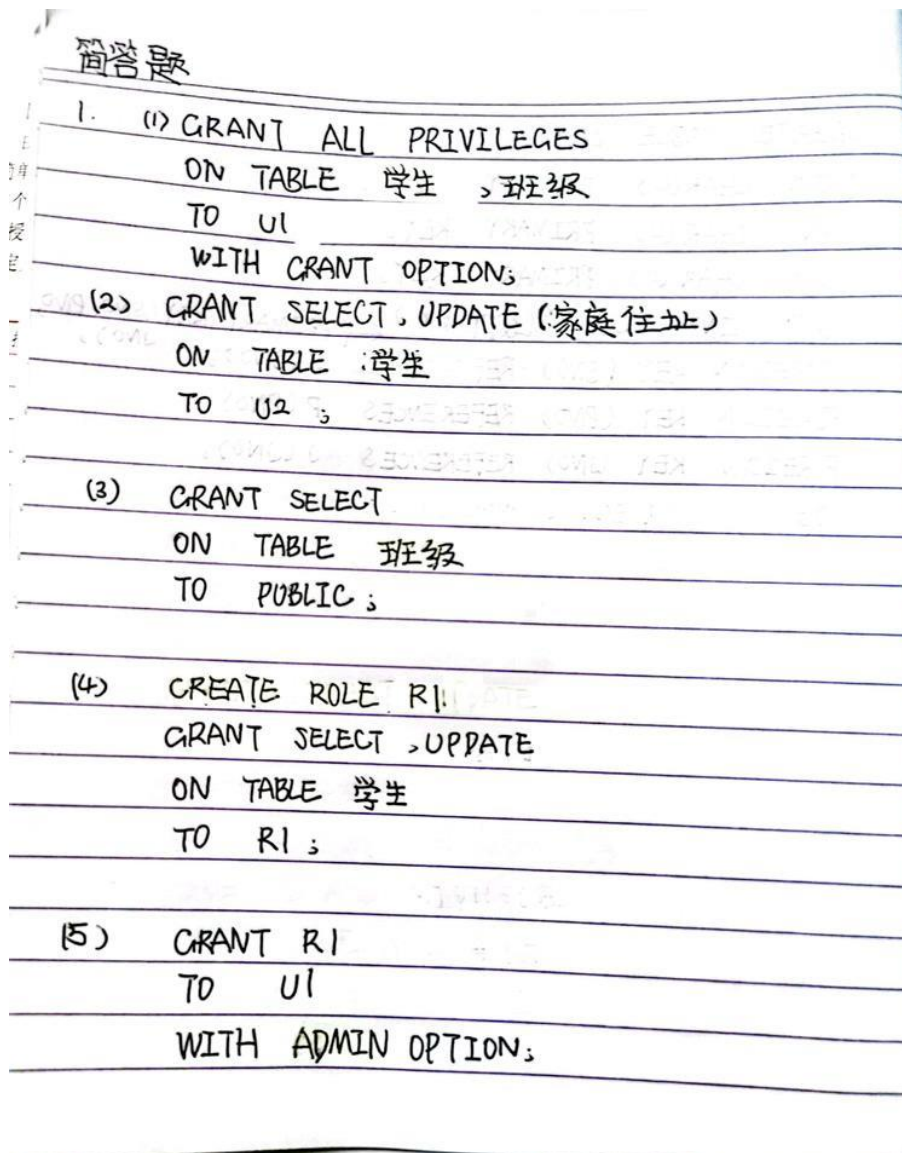 简答题
1. (1) GRANT ALL PRIVILEGES
ON TABLE 学生,班级
TO U1
WITH GRANT OPTION;
(2) GRANT SELECT,UPDATE(家庭住址)
ON TABLE 学生
TO U2;
(3) GRANT SELECT
ON TABLE 班级
TO PUBLIC;
(4) CREATE ROLE R1;
GRANT SELECT,UPDATE
ON TABLE 学生
TO R1;
(5) GRANT R1
TO U1
WITH ADMIN OPTION;